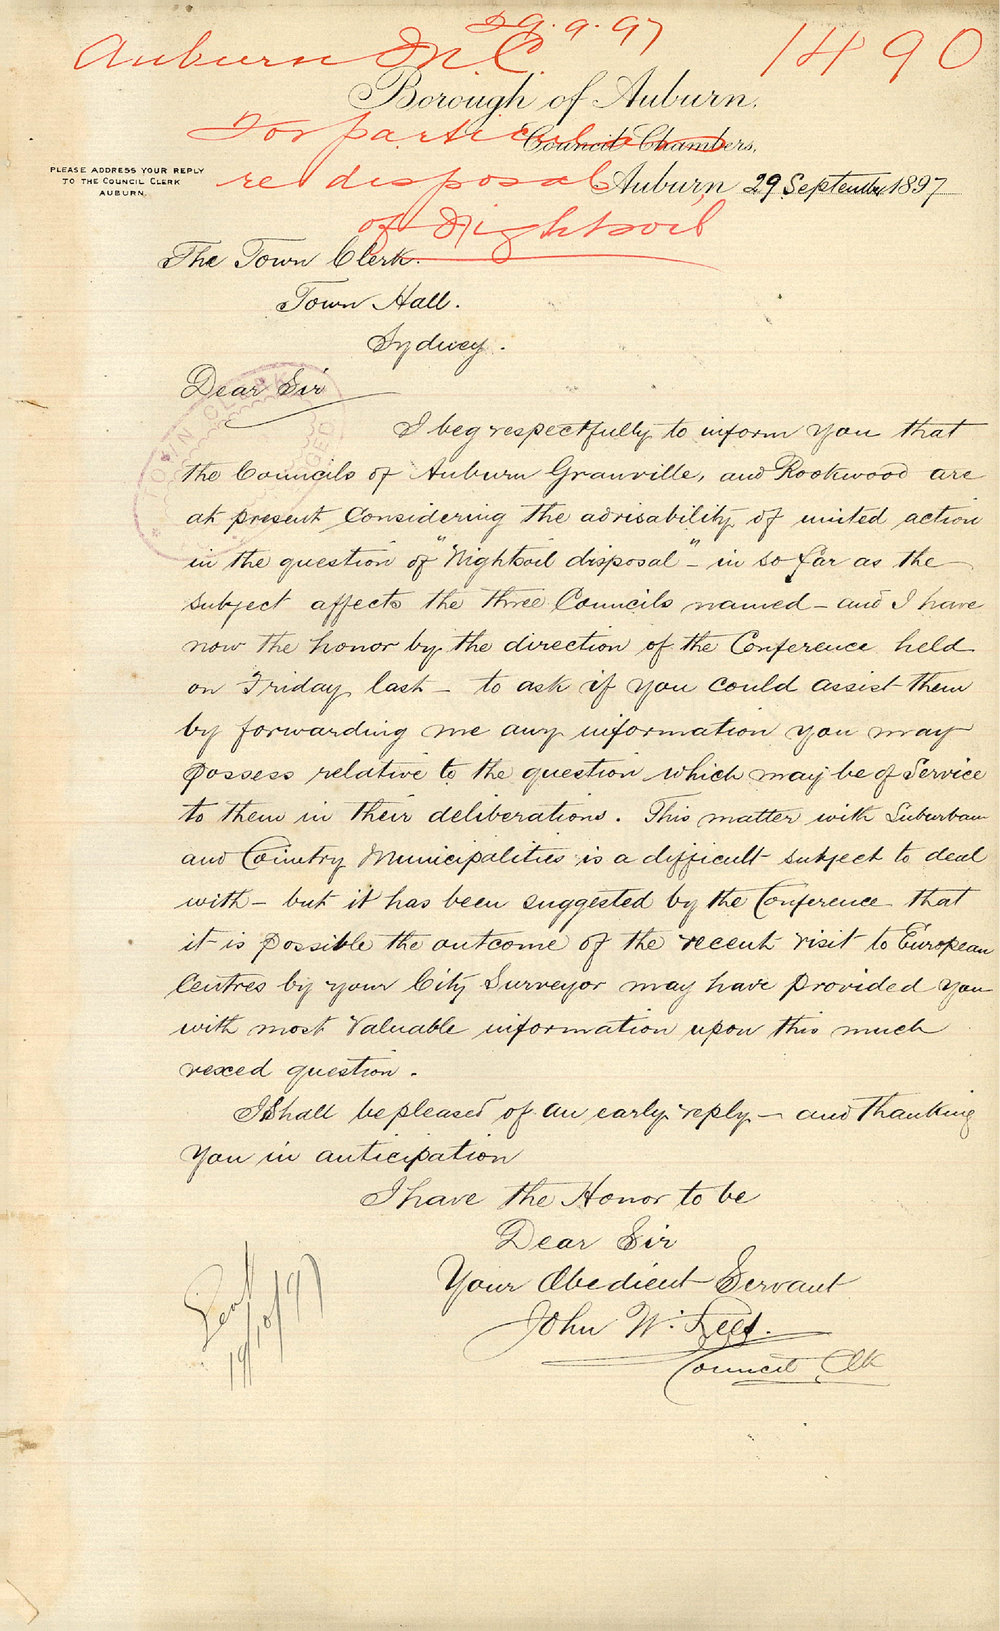 29.9.97
Auburn M.C. 1490
Borough of Auburn.
For particulars
Council Chambers,
PLEASE ADDRESS YOUR REPLY
TO THE COUNCIL CLERK
AUBURN.
re disposal
Auburn 29 September 1897
of Nightsoil
The Town Clerk.
Town Hall.
Sydney.
Dear Sir
TOWN CLERK
I beg respectfully to inform you that
the Councils of Auburn Granville, and Rookwood are
at present Considering the advisability of united action
in the question of "Nightsoil disposal" - in so far as the
Subject affects the three Councils named - and I have
now the honor by the direction of the Conference held
on Friday last - to ask if you could assist them
by forwarding me any information you may
possess relative to the question which may be of Service
to them in their deliberations. This matter with Suburban
and Country Municipalities is a difficult subject to deal
with - but it has been suggested by the Conference that
it is possible the outcome of the recent visit to European
Centres by your City Surveyor may have provided you
with most Valuable information upon this much
vexed question.
I Shall be pleased of an early reply - and thanking
you in anticipation
I have the Honor to be
Dear Sir
Your Obedient Servant
John W. Lees.
Council Clk
19/10/97